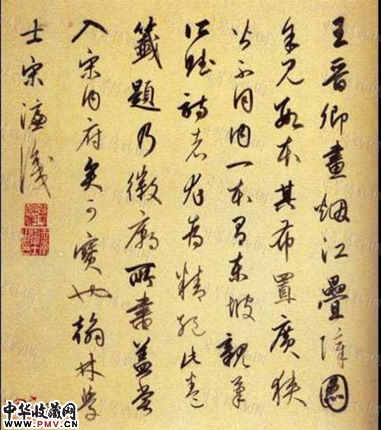 王晉卿畫烟江疊嶂圖
余見數本其布置廣狹
皆不同内一本有東坡親筆
所賦詩者尤為精絕此卷
籤題乃徽廟所書蓋嘗
入宋内府矣可寶也翰林學
士宋濂識
中华收藏网
WWW.PMV.CN